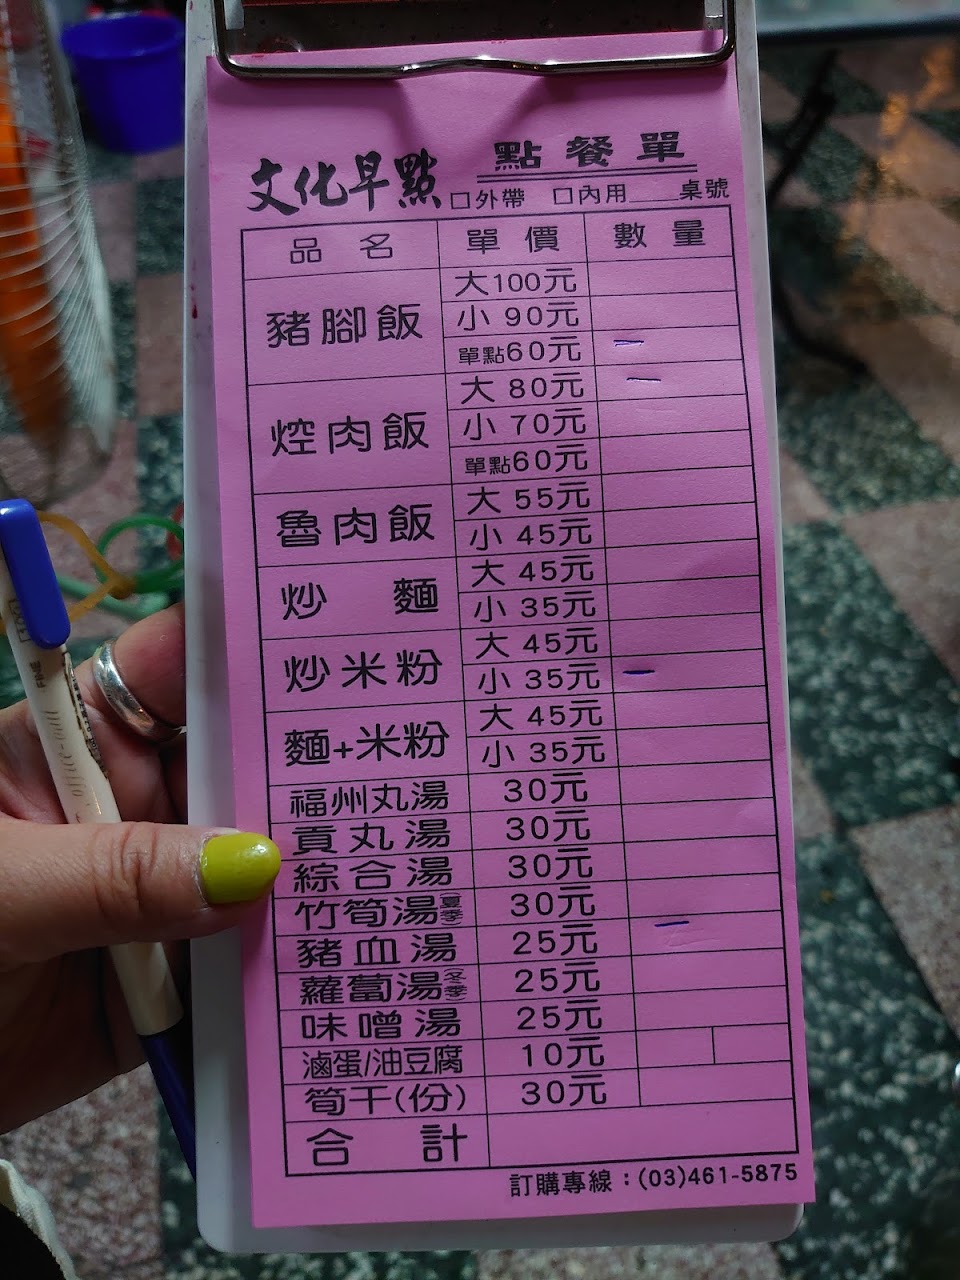 點餐單
文化早點 □外帶 □內用____桌號
品名 單價 數量
豬腳飯 大100元
小 90元
單點60元
焢肉飯 大 80元
小 70元
單點60元
魯肉飯 大 55元
小 45元
炒麵 大 45元
小 35元
炒米粉 大 45元
小 35元
麵+米粉 大 45元
小 35元
福州丸湯 30元
貢丸湯 30元
綜合湯 30元
竹筍湯(夏季) 30元
豬血湯 25元
蘿蔔湯(冬季) 25元
味噌湯 25元
滷蛋/油豆腐 10元
筍干(份) 30元
合計
訂購專線：(03)461-5875